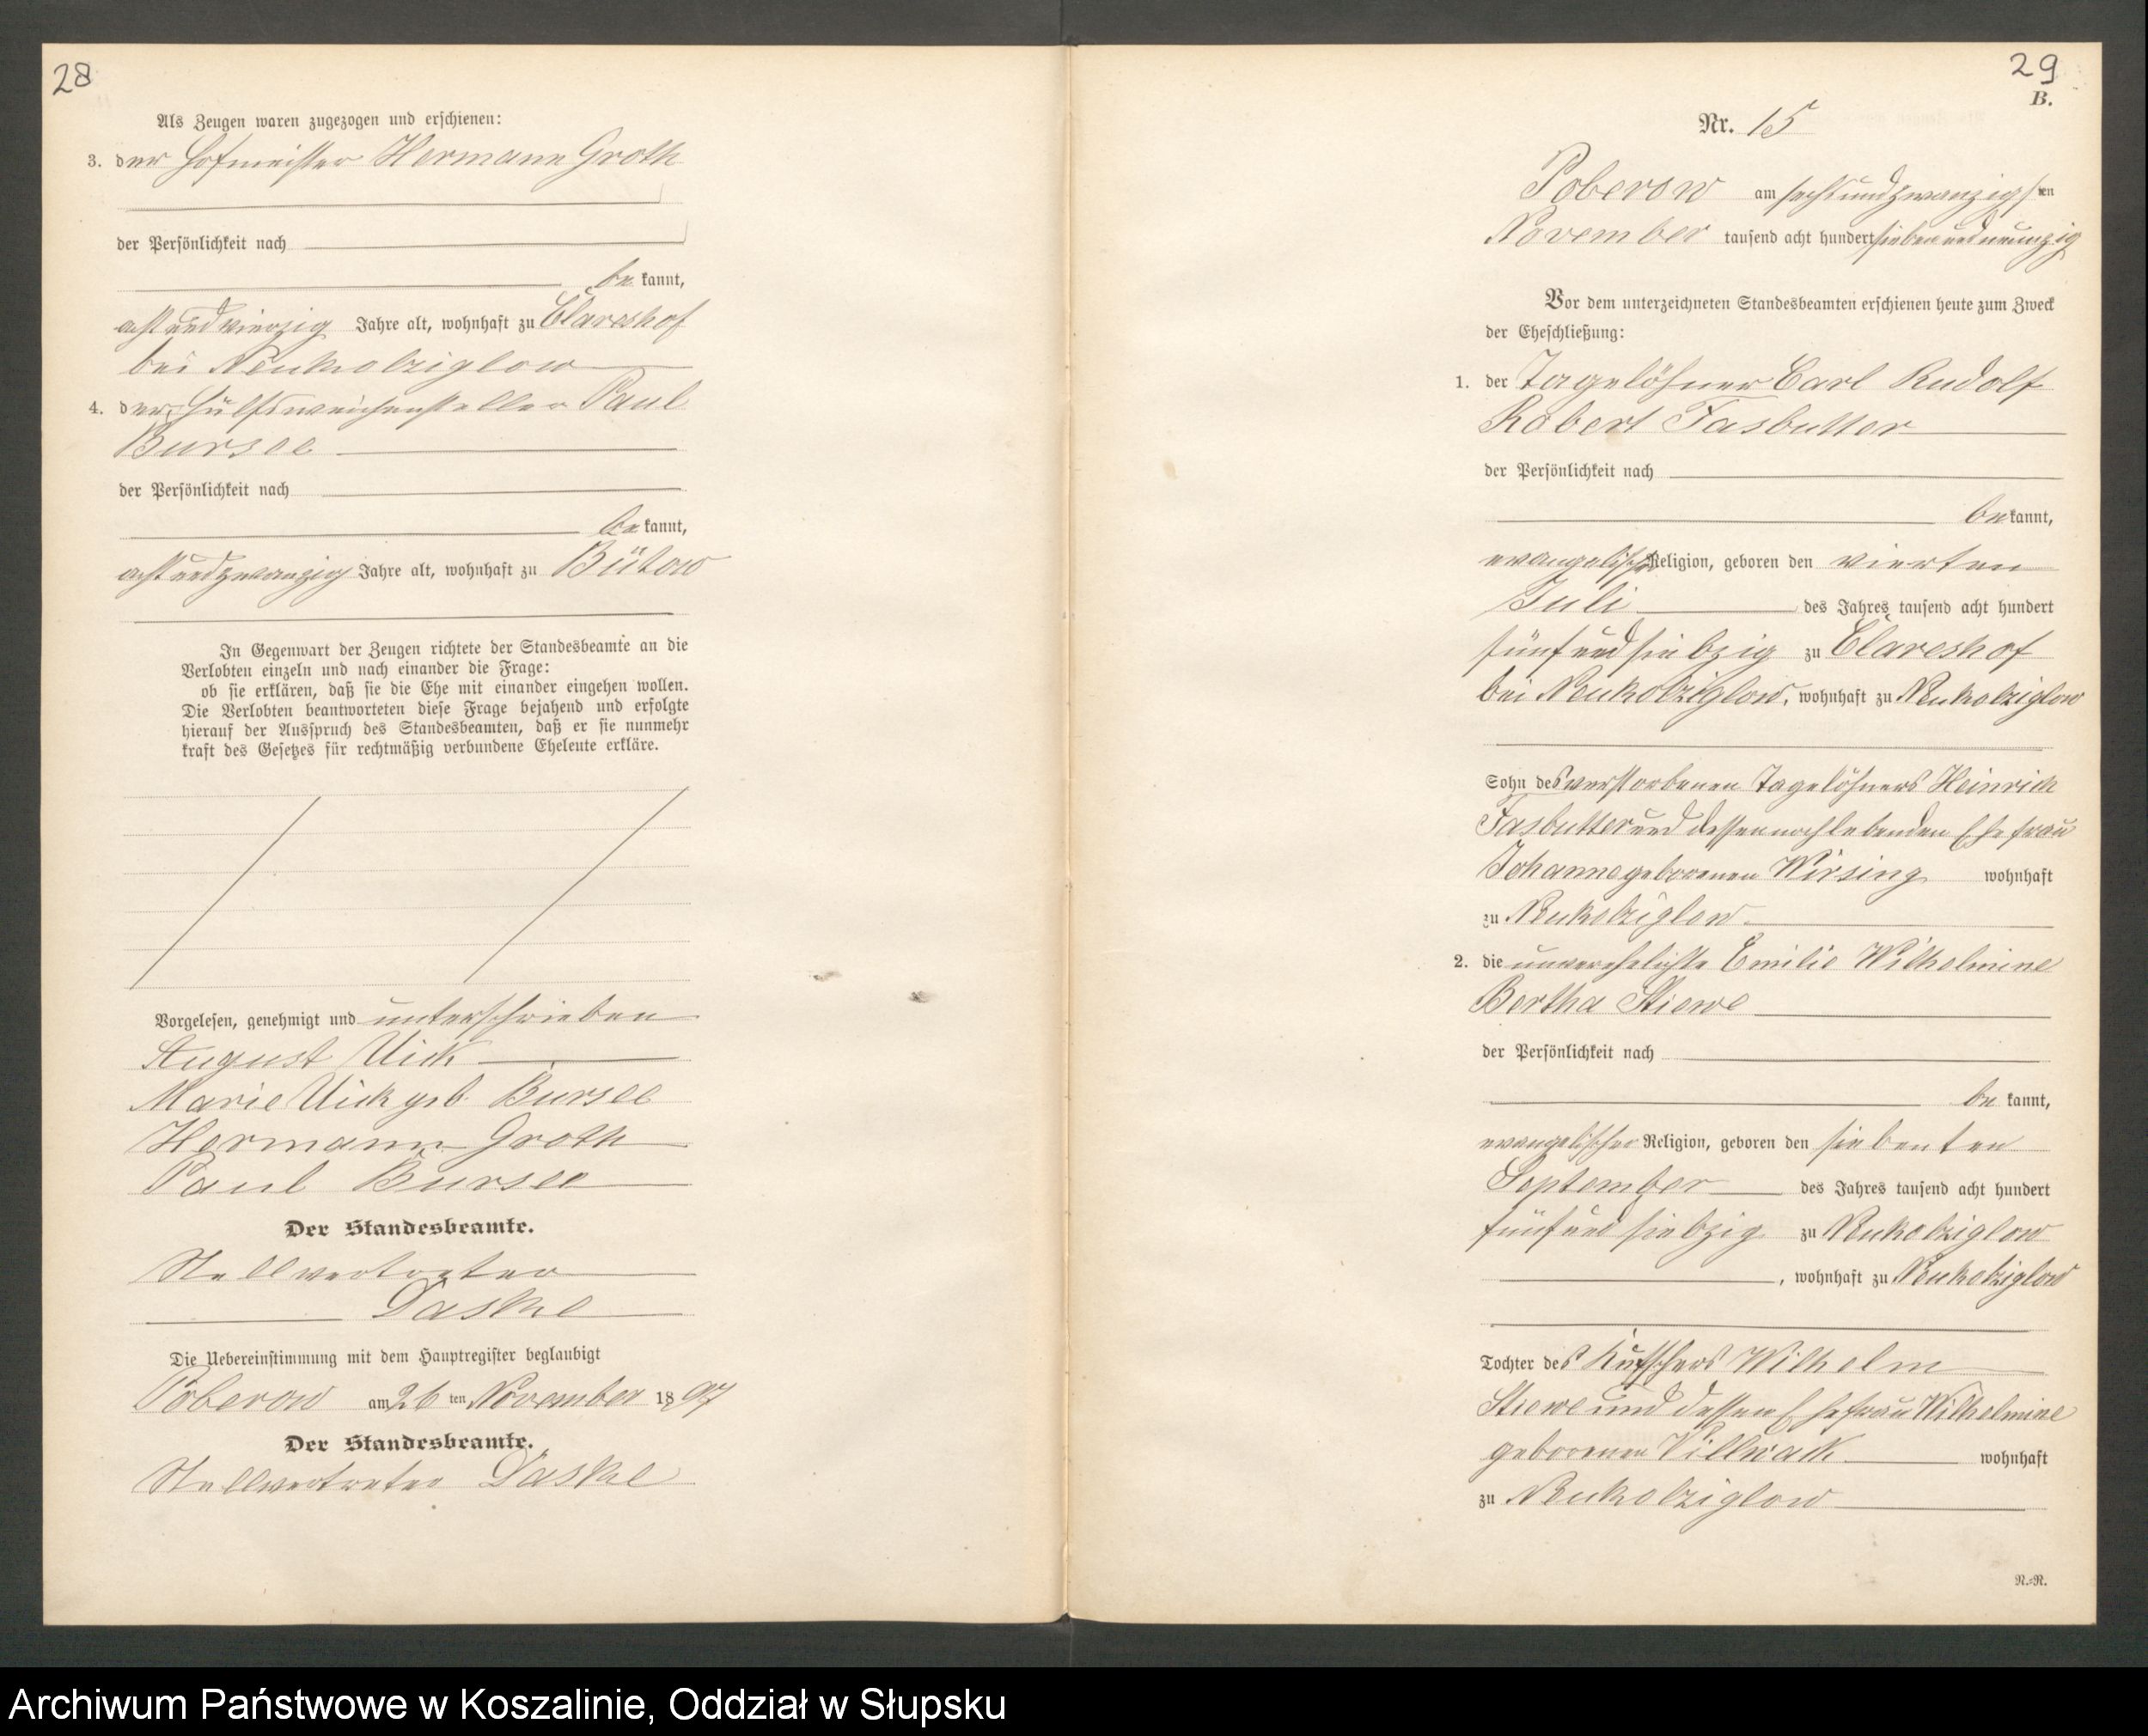 28
Als Zeugen waren zugezogen und erschienen:
3. der Hofmeister Hermann Groth
der Persönlichkeit nach
be kannt,
achtundvierzig Jahre alt, wohnhaft zu Clareshof
bei Neukolziglow
4. der Hülfsweichensteller Paul
Bursee
der Persönlichkeit nach
be kannt,
achtundzwanzig Jahre alt, wohnhaft zu Bütow
In Gegenwart der Zeugen richtete der Standesbeamte an die
Verlobten einzeln und nach einander die Frage:
ob sie erklären, daß sie die Ehe mit einander eingehen wollen.
Die Verlobten beantworteten diese Frage bejahend und erfolgte
hierauf der Ausspruch des Standesbeamten, daß er sie nunmehr
kraft des Gesetzes für rechtmäßig verbundene Eheleute erkläre.
Vorgelesen, genehmigt und unterschrieben
August Uick
Marie Uick geb. Bursee
Hermann Groth
Paul Bursee
Der Standesbeamte.
Stellvertreter
Daske
Die Uebereinstimmung mit dem Hauptregister beglaubigt
Poberow am 26 ten November 18 97
Der Standesbeamte.
Stellvertreter Daske
29
B.
Nr. 15
Poberow am sechsundzwanzigsten
November tausend acht hundert siebenundneunzig
Vor dem unterzeichneten Standesbeamten erschienen heute zum Zweck
der Eheschließung:
1. der Tagelöhner Carl Rudolf
Robert Fasbutter
der Persönlichkeit nach
be kannt,
evangelischer Religion, geboren den vierten
Juli des Jahres tausend acht hundert
fünfundsiebzig zu Clareshof
bei Neukolziglow, wohnhaft zu Neukolziglow
Sohn des verstorbenen Tagelöhners Heinrich
Fasbutter und dessen noch lebenden Ehefrau
Johanne geborenen Wirsing wohnhaft
zu Neukolziglow
2. die unverehelichte Emilie Wilhelmine
Bertha Stiewe
der Persönlichkeit nach
be kannt,
evangelischer Religion, geboren den siebenten
September des Jahres tausend acht hundert
fünfundsiebzig zu Neukolziglow
, wohnhaft zu Neukolziglow
Tochter des Kutschers Wilhelm
Stiewe und dessen Ehefrau Wilhelmine
geborenen Villwack wohnhaft
zu Neukolziglow
N.=R.
Archiwum Państwowe w Koszalinie, Oddział w Słupsku